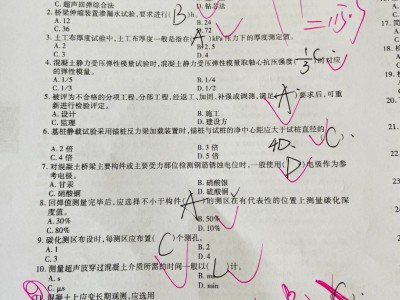 C. 超声回弹综合法 D. 钻芯法
2. 桥梁伸缩装置渗漏水试验，要求进行( B )h。
A. 12 B. 24
C. 36 D. 72
3. 土工布厚度试验中，土工布厚度一般是指在( A )kPa压力下的厚度测定值。
A. 2 B. 2.5
C. 3 D. 4
4. 混凝土静力受压弹性模量试验时，混凝土静力受压弹性模量取轴心抗压强度 1/3 C 时对应
的弹性模量。
A. 1/5 B. 1/4
C. 1/3 D. 1/2
5. 被评为不合格的分项工程、分部工程，经返工、加固、补强或调测，满足( A )要求后，可重
新进行检验评定。
A. 设计 B. 施工
C. 监理 D. 建设方
6. 基桩静载试验采用锚桩反力梁加载装置时，锚桩与试桩的净中心距应大于试桩直径的
4D. ( C )。
A. 2 倍 B. 3 倍
C. 4 倍 D. 5 倍
7. 对混凝土桥梁主要构件或主要受力部位检测钢筋锈蚀电位时，一般使用( D )电极作为参
考电极。
A. 甘汞 B. 硝酸银
C. 硝酸铜 D. 硫酸铜
8. 回弹值测量完毕后，应选择不小于构件( A )的测区在有代表性的位置上测量碳化深
度值。
A. 30% B. 50%
C. 80% D. 10%
9. 碳化测区布设时，每测区应布置( C )个测孔。
A. 1 B. 2
C. 3 D. 4
10. 测量超声波穿过混凝土介质所需的时间一般以( )计。
A. s B. ms
C. μs D. min
混凝土上应变长期观测，应选用